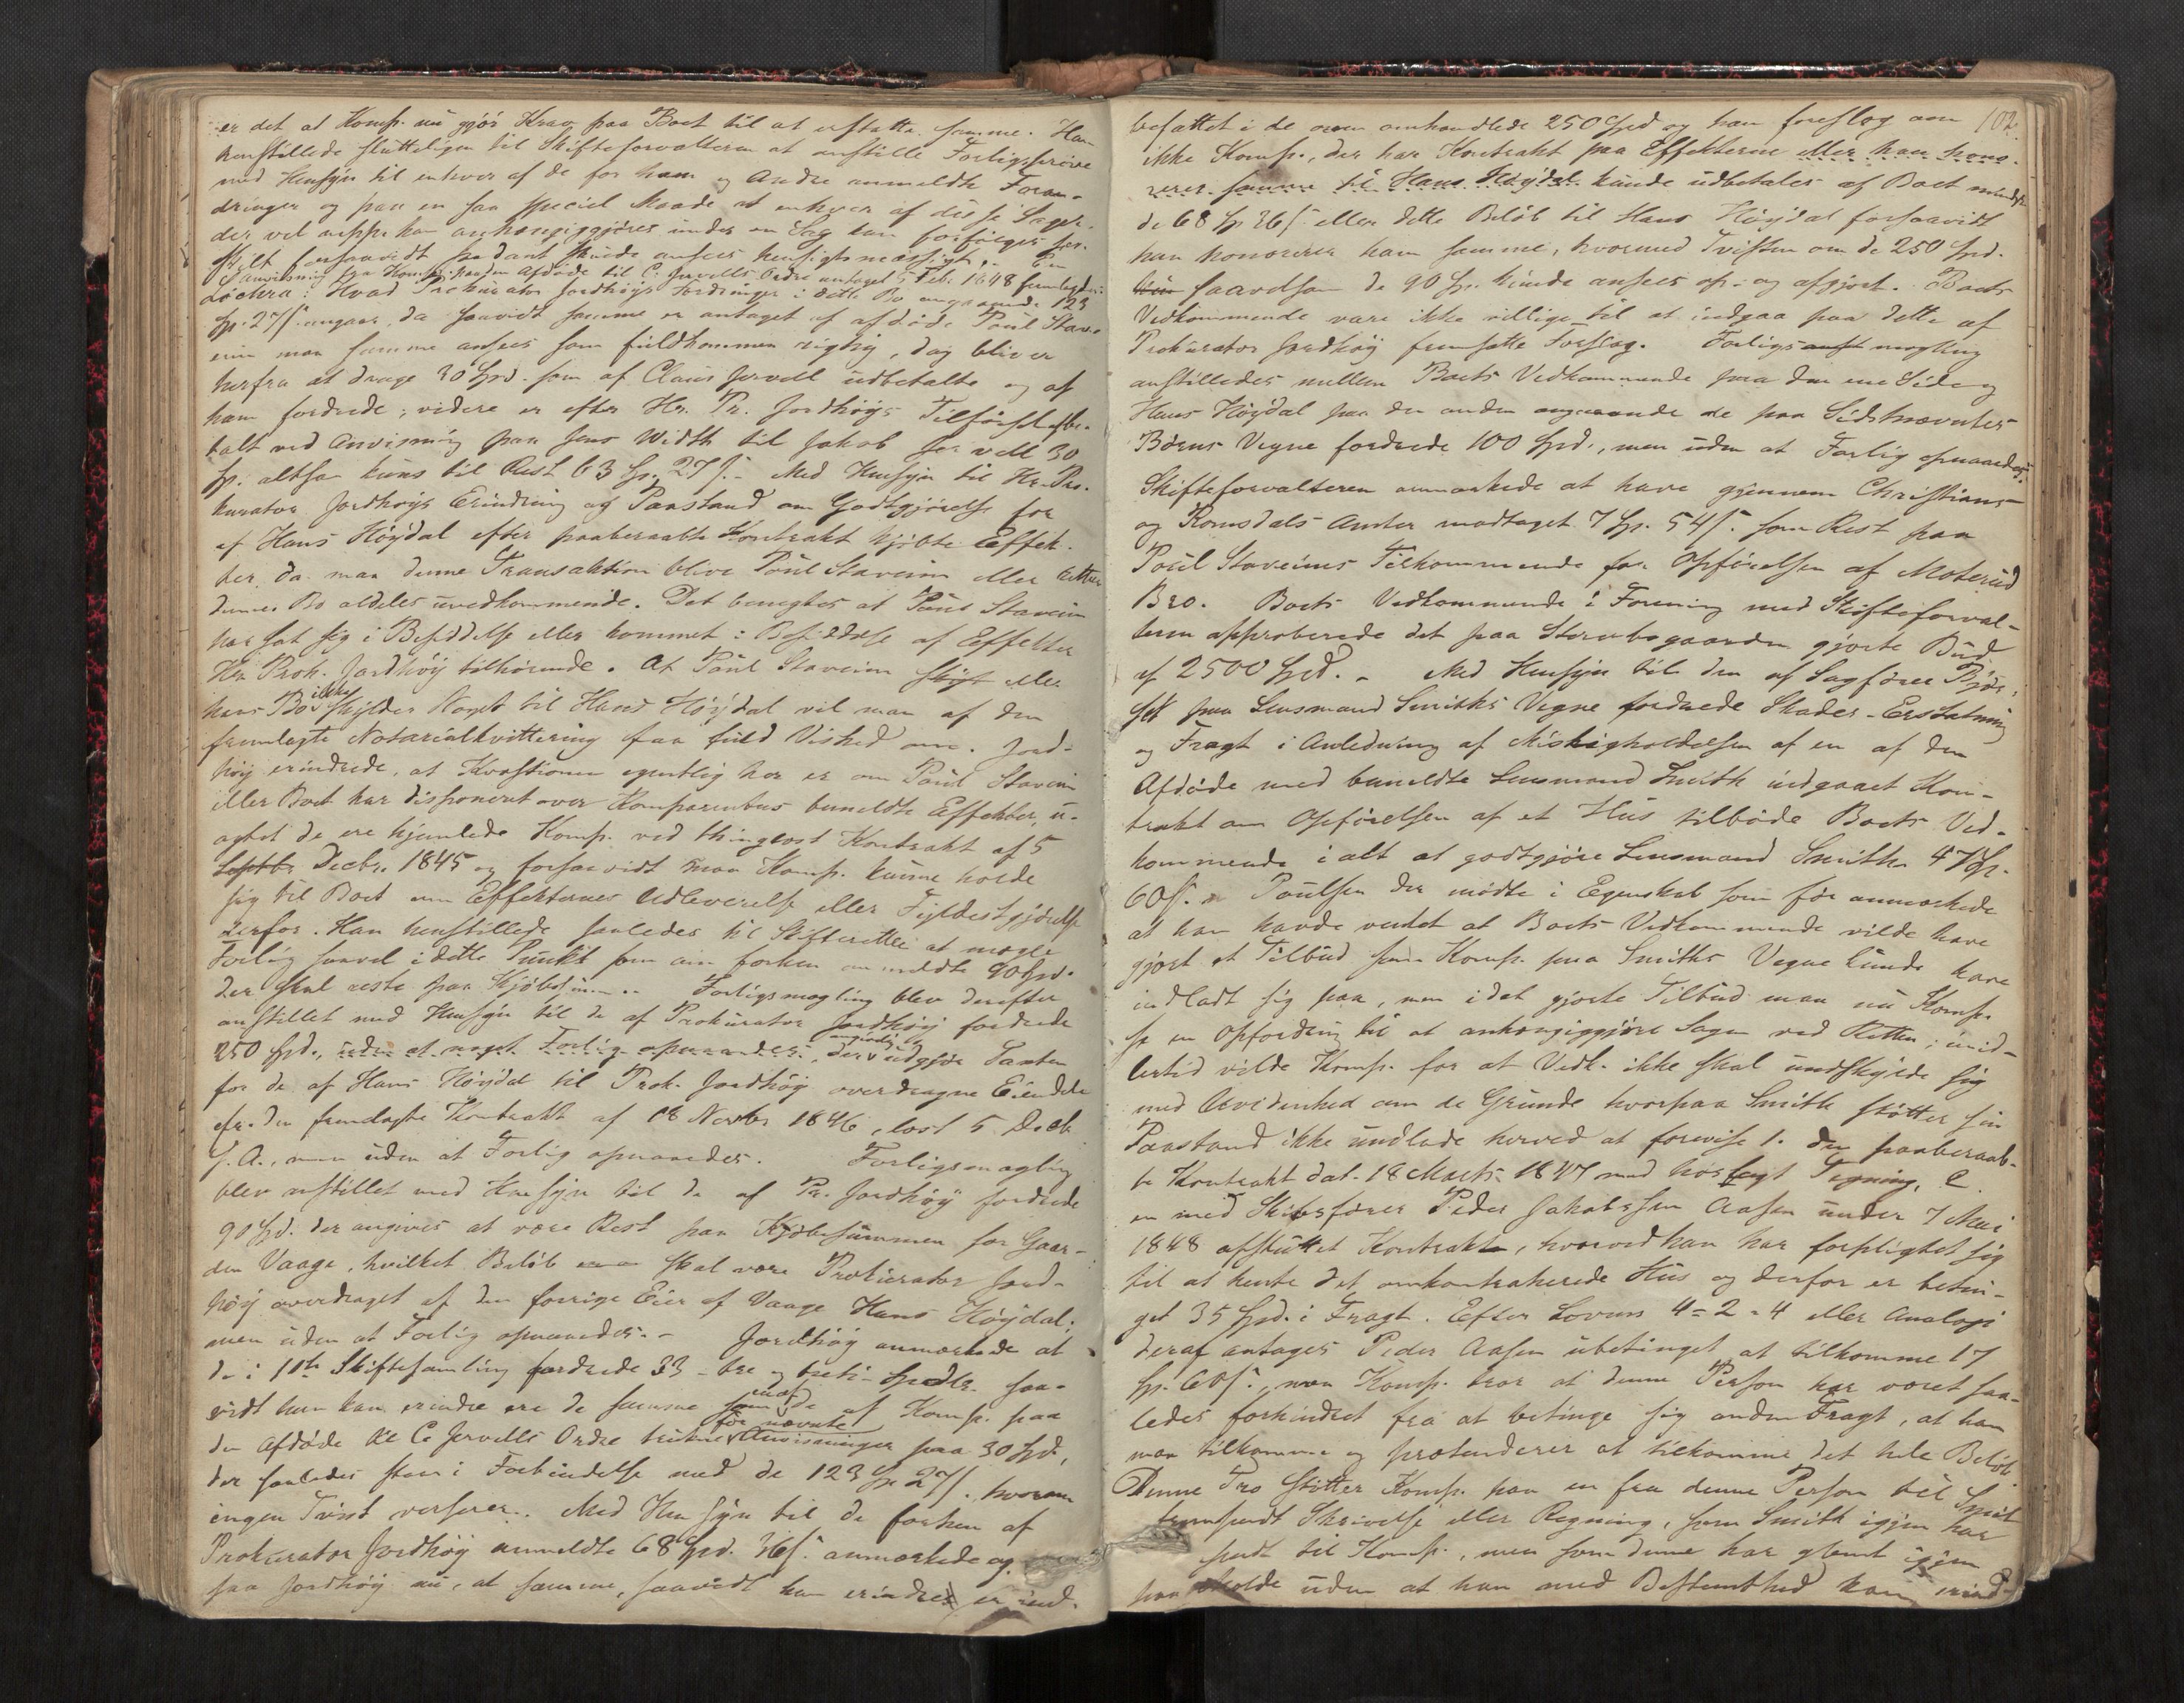 er det at Komp. nu gjör Krav paa Boet til at erstatte samme. Han
henstillede slutteligen til Skifteforvalteren at anstille Forligsprøve
med Hensyn til enhver af de for ham og Andre anmeldte Foran-
dringer og paa en saa speciel Maade at enhver af disse Sager
der vel neppe kan anhængiggjøres under en Sag kan forfølges sær-
skilt forsaavidt saadant skulde ansees hensigtsmæssigt. En
Anvisning fra Komp. paa den Afdøde til C. Jervells Ordre antaget 5 Feb. 1848 fremlagdes.
Løchra: Hvad Prokurator Jordhøys Fordringer i dette Bo angaaende 123
Sp. 27 s. angaar, da saavidt samme er antaget af afdøde Poul Stav-
eim maa samme ansees som fuldkommen rigtig, dog bliver
herfra at drage 30 Spd. som af Claus Jervell udbetalte og af
ham fordrede; videre er efter Hr. Pr. Jordhöys Tilførsel afbe-
talt ved Anvisning paa Jens Width til Jakob Jervell 30
Sp. altsaa kuns til Rest 63 Sp. 27 s. - Med Hensyn til Hr. Pro-
kurator Jordhöys Erindring og Paastand om Godtgjørelse for
af Hans Höydal efter paaberaabte Kontrakt kjøbte Effek-
ter, da maa denne Transaktion blive Poul Staveim eller rettere
dennes Bo aldeles uvedkommende. Det benegtes at Poul Staveim
har sat sig i Besiddelse eller kommet i Besiddelse af Effekter
Hr. Prok. Jordhöy tilhørende. At Poul Staveim skyl eller
hans Bo ikke skylder Noget til Hans Höydal vil man af den
fremlagte Notarialkvittering faa fuld Vished om. Jord-
höy erindrede, at Kvæstionen egentlig her er om Poul Staveim
eller Boet har disponeret over Komparentens bemeldte Effekter, u-
agtet de ere hjemlede Komp. ved thinglæst Kontrakt af 5
Septbr Decbr. 1845 og forsaavidt maa Komp. kunne holde
sig til Boet om Effekternes Udleverelse eller Fyldestgjørelse
derfor. Han henstillede saaledes til Skifteretten at mægle
Forlig saavel i dette Punkt som om forhen anmeldte 90 Spd.
der skal reste paa Kjøbesummen. - Forligsmægling blev derefter
anstillet med Hensyn til de af Prokurator Jordhöy fordrede
250 Spd., uden at noget Forlig opnaaedes, der angivelig udgjör Taxten
for de af Hans Höydal til Prok. Jordhöy overdragne Eiendele
efr. den fremlagte Kontrakt af 18 Novbr 1846, læst 5. Decb.
s. A., men uden at Forlig opnaaedes. Forligsmægling
blev anstillet med Hensyn til de af Pr. Jordhöy fordrede
90 Spd. der angives at være Rest paa Kjøbesummen for Gaar-
den Vaage, hvilket Beløb skal være Prokurator Jord-
höy overdraget af den forrige Eier af Vaage Hans Höydal;
men uden at Forlig opnaaedes. - Jordhöy anmærkede at
de i 1ste Skiftesamling fordrede 33 - tre og treti - Spdlr. saa-
vidt han kan erindre ere de samme som de en af af Komp. paa
den Afdøde til C. Jervells Ordre trukne før nævnte Anvisninger paa 30 Spd,
der saaledes staar i Forbindelse med de 123 Sp. 27 s. hvorom
ingen Tvist verserer. Med Hensyn til de forhen af
Prokurator Jordhöy anmeldte 68 Spd. 26 s. anmærkede og-
saa Jordhöy nu, at samme, saavidt han erindrer er ind-
102.
befattet i de oven omhandlede 250 Spd og han foreslog om
ikke Komp., der har Kontrakt paa Effekterne eller han hono-
rerer samme til Hans Höydal kunde udbetales af Boet mindst
de 68 Sp. 26 s. eller dette Beløb til Hans Höydal forsaavidt
han honorerer ham samme, hvormed Tvisten om de 250 Spd.
saavelsom de 90 Sp. kunde ansees op- og afgjort. Boets
Vedkommende vare ikke villige til at indgaa paa dette af
Prokurator Jordhöy fremsatte Forslag. Forligs mægling
anstilledes mellem Boets Vedkommende paa den ene Side og
Hans Höydal paa den anden angaaende de paa Sidstnævntes
Børns Vegne fordrede 100 Spd., men uden at Forlig opnaaedes.
Skifteforvalteren anmærkede at have gjennem Christians-
og Romsdals Amter modtaget 7 Sp. 54 s. som Rest paa
Poul Staveims Tilkommende for Opførelsen af Moterud
Bro. Boets Vedkommende i Forening med Skifteforval-
teren approberede det paa Storebogaarden gjorte Bud
af 2500 Spd. - Med Hensyn til den af Sagfører Bjør-
set paa Lensmand Smiths Vegne fordrede Skades-Erstatning
og Fragt i Anledning af Misligholdelsen af en af den
Afdøde med bemeldte Lensmand Smith indgaaet Kon-
trakt om Opførelsen af et Huus tilbøde Boets Ved-
kommende ialt at godtgjöre Lensmand Smith 47 Sp.
60 s. Poulsen der mødte i Egenskab som før anmærkede
at han havde ventet at Boets Vedkommende vilde have
gjort et Tilbud som Komp. paa Smiths Vegne kunde have
indladt sig paa, men i det gjorte Tilbud maa nu Komp.
se en Opfordring til at anhængiggjöre Sagen ved Retten; imid-
lertid vilde Komp. for at Vedk. ikke skal undskylde sig
med Uvidenhed om de Grunde hvorpaa Smith støtter sin
Paastand ikke undlade herved at forevise 1. den paaberaab-
te Kontrakt dat. 18 Marts 1847 med hosføyet Tegning, 2
en med Skibsfører Peder Jakobsen Aasen under 7 Mai
1848 afsluttet Kontrakt, hvorved han har forpligtet sig
til at hente det omkontraherede Huus og derfor er betin-
get 35 Spd. i Fragt. Efter Lovens 4-2-4 eller Analogi
deraf antages Peder Aasen ubetinget at tilkomme 17
Sp. 60 s., men Komp. tror at denne Person har været saa-
ledes forhindret fra at betinge sig anden Fragt, at ham
maa tilkomme og prætenderer at tilkomme det hele Beløb.
Denne Tro støtter Komp. paa en fra denne Person til Smith
fremsendt Skrivelse eller Regning, som Smith igjen har
sendt til Komp., men som denne har glemt igjen
paa uden at han med Bestemthed kan erind-